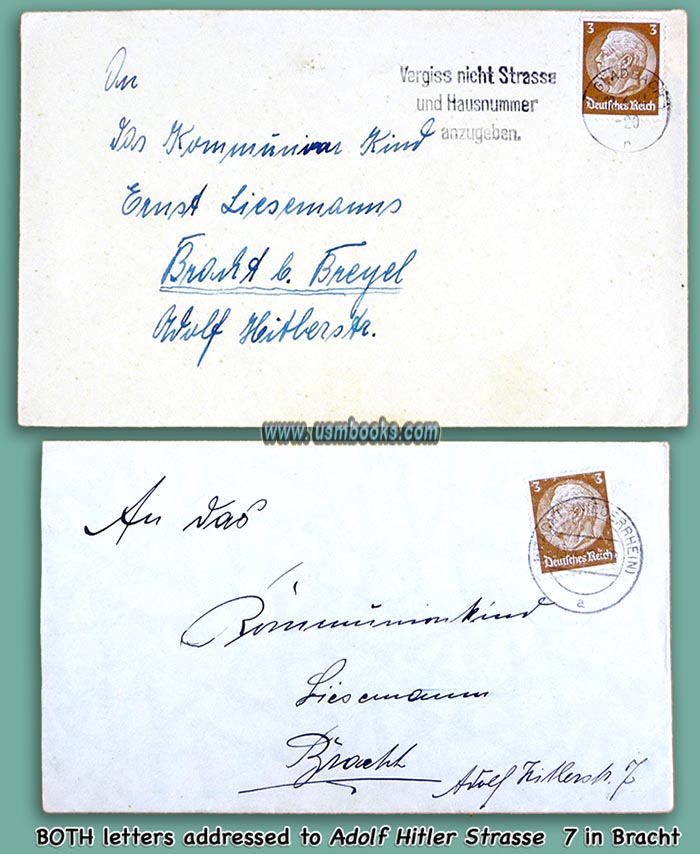 3 3
Deutsches Reich
Vergiss nicht Strasse
und Hausnummer
anzugeben.
GLADBACH
-20
An
das Kommunion Kind
Ernst Liesemanns
Bracht b. Breyel
Adolf Hitlerstr.
www.usmbooks.com
3 3
Deutsches Reich
(NIEDERRHEIN)
a
An das
Kommunionkind
Liesemann
Bracht
Adolf Hitlerstr. 7
BOTH letters addressed to Adolf Hitler Strasse 7 in Bracht